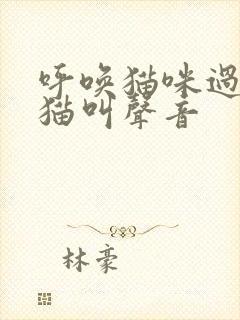 呼唤猫咪過
猫叫聲音
林豪